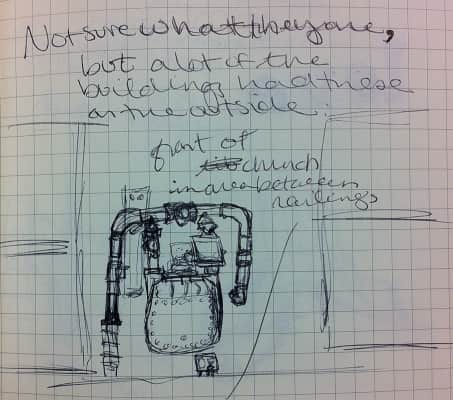 Not sure what they are,
but a lot if the
buildings had these
on the outside.
front of
church
in area between
railings